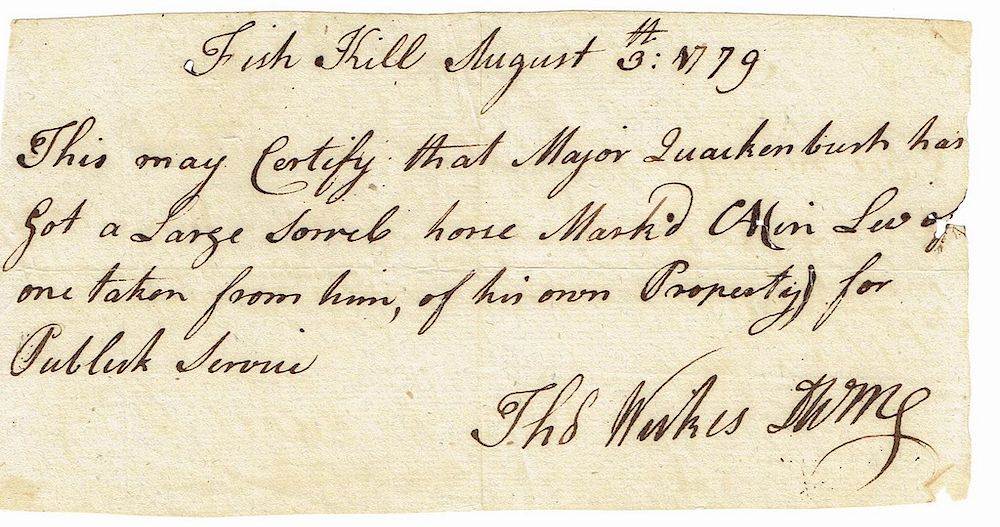 Fish Kill August 3th: 1779
This may Certify that Major Quackenbush has
Got a Large Sorrel horse Mark'd CA (in Lew of
one taken from him, of his own Property) for
Publick Service
Thos Weekes DWMG